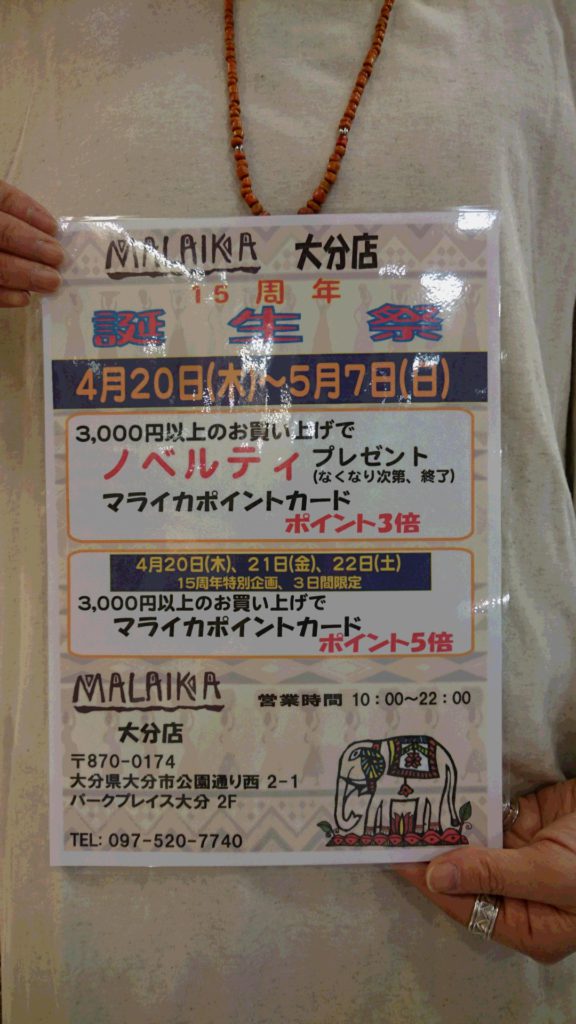 MALAIKA 大分店
15周年
誕生祭
4月20日(木)～5月7日(日)
3,000円以上のお買い上げで
ノベルティ プレゼント
(なくなり次第、終了)
マライカポイントカード
ポイント3倍
4月20日(木)、21日(金)、22日(土)
15周年特別企画、3日間限定
3,000円以上のお買い上げで
マライカポイントカード
ポイント5倍
MALAIKA
営業時間 10：00～22：00
大分店
〒870-0174
大分県大分市公園通り西 2-1
パークプレイス大分 2F
TEL: 097-520-7740